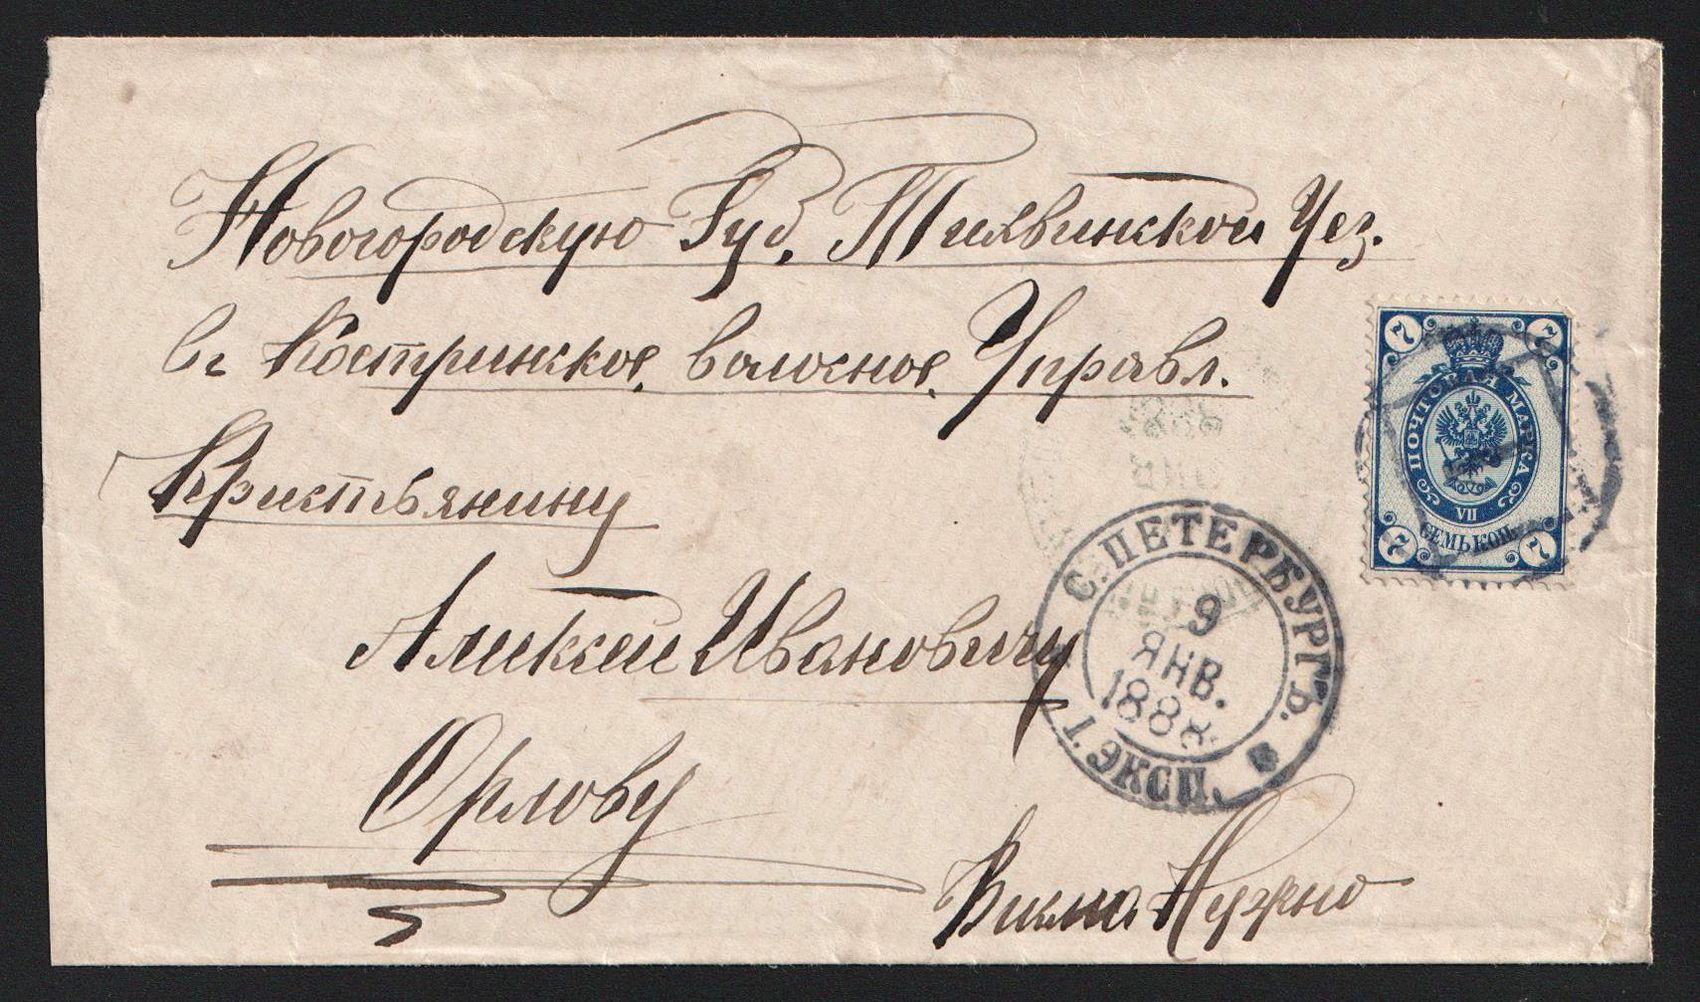 Новогородскую Губ. Тихвинской Уез.
Вг Костринское. волосное. Управл.
Кристьянину
Аликсею Ивановичу
Орлову
Нужно
7 7
ПОЧТОВАЯ МАРКА
VII
СЕМЬ КОП.
7 7
С. ПЕТЕРБУРГЪ.
9
ЯНВ.
1888
1. ЭКСП.